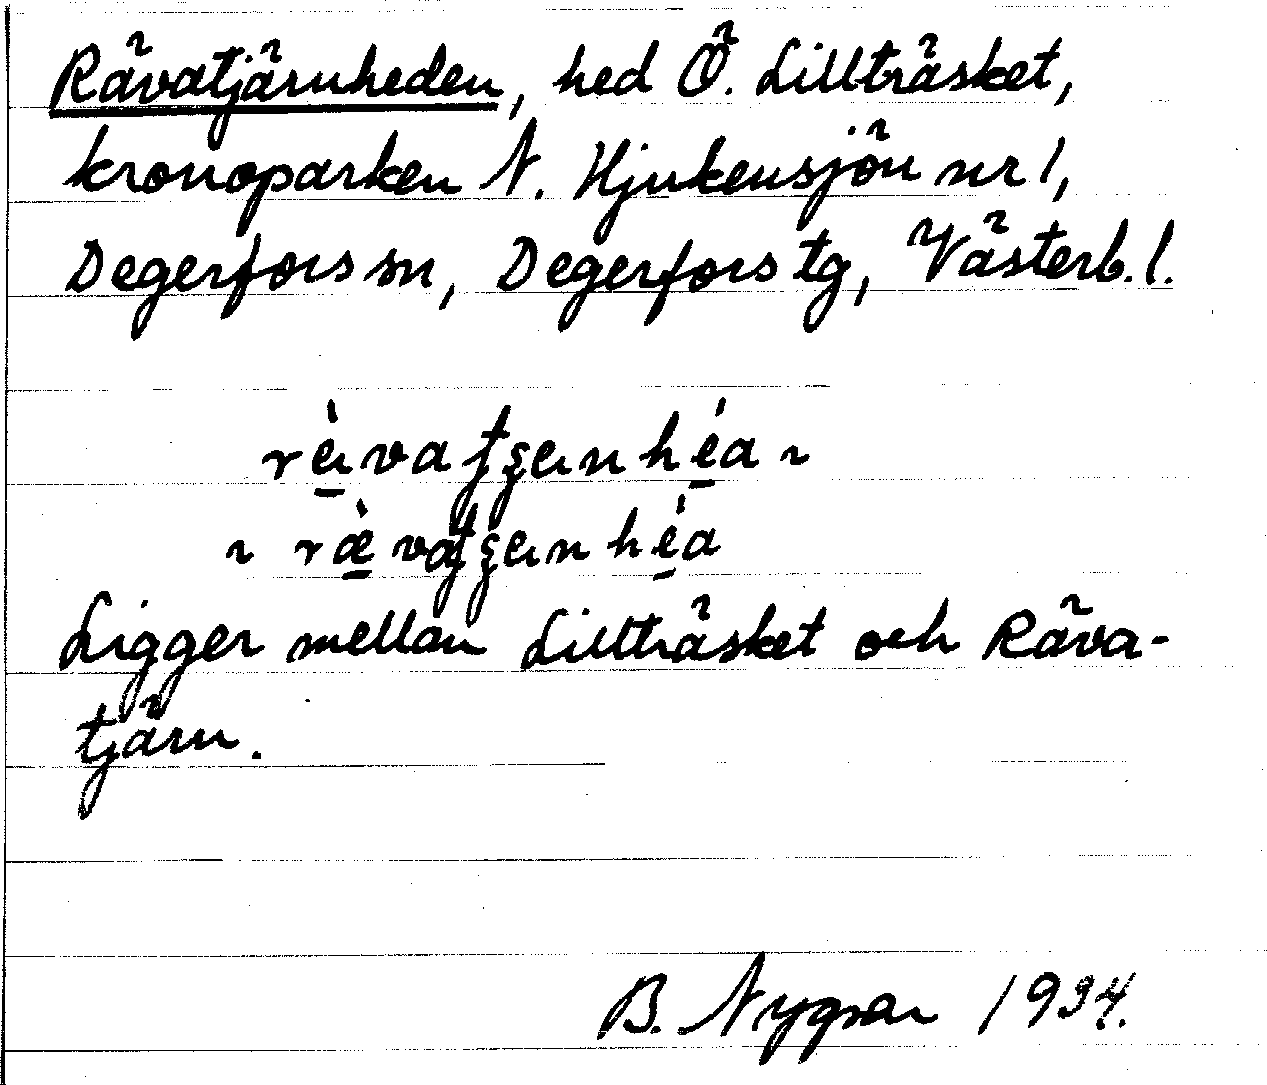 Rävatjärnheden, hed Ö. Lillträsket,
kronoparken N. Hjukensjön nr 1,
Degerfors sn, Degerfors tg, Västerb. l.
Ligger mellan Lillträsket och Räva-
tjärn.
B. Nygran 1934.